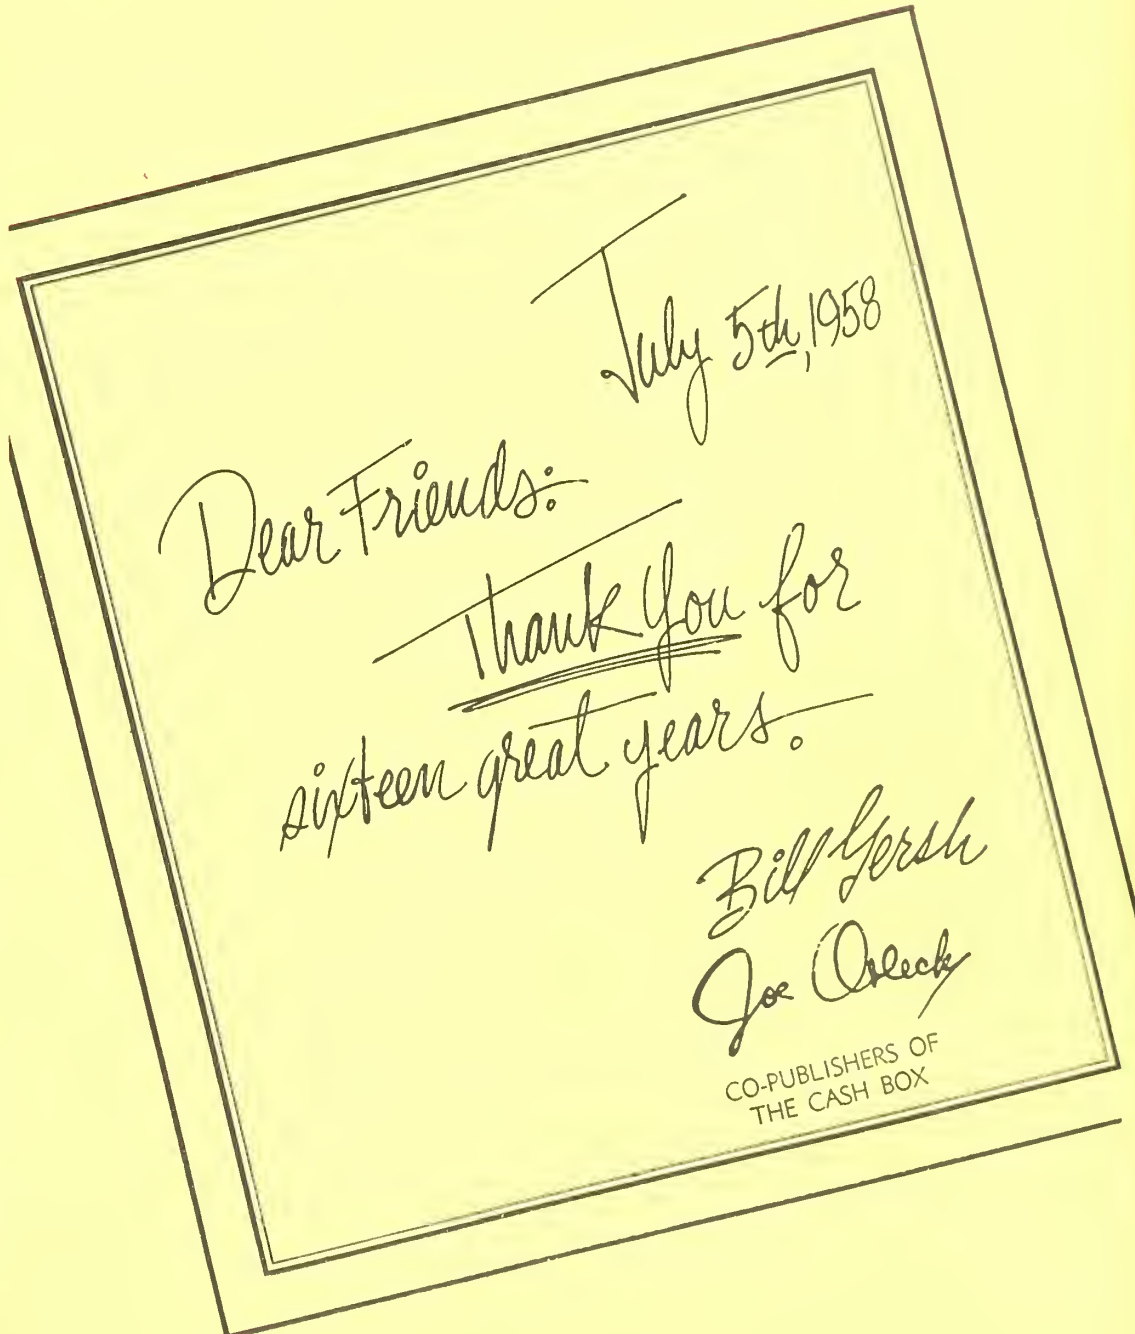 July 5th, 1958
Dear Friends:
Thank You for
sixteen great years.
Bill Gersh
Joe Orleck
CO-PUBLISHERS OF
THE CASH BOX